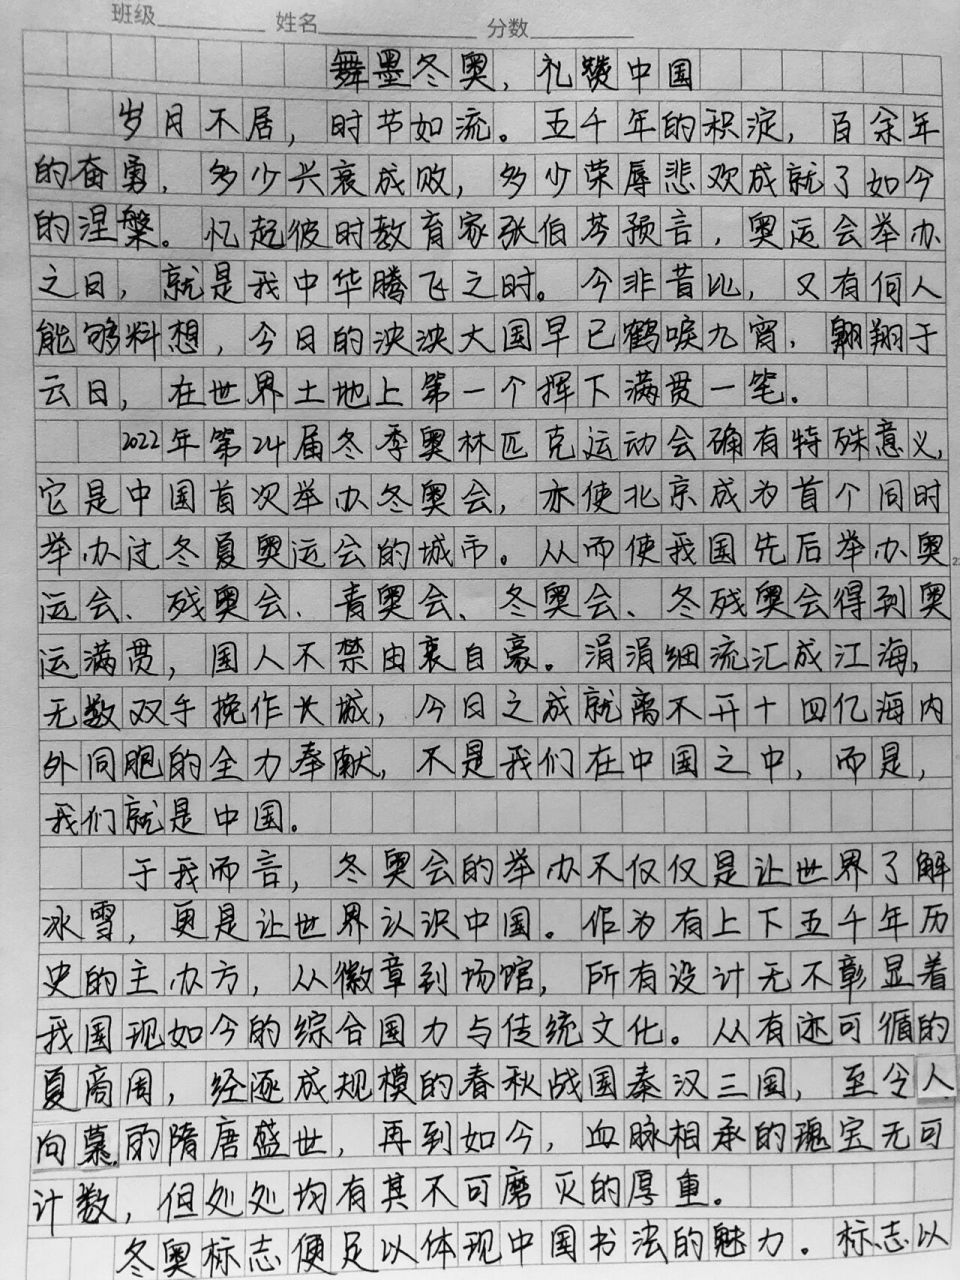 班级 姓名 分数
舞墨冬奥，礼赞中国
岁月不居，时节如流。五千年的积淀，百余年
的奋勇，多少兴衰成败，多少荣辱悲欢成就了如今
的涅槃。忆起彼时教育家张伯苓预言，奥运会举办
之日，就是我中华腾飞之时。今非昔比，又有何人
能够料想，今日的泱泱大国早已鹤唳九宵，翱翔于
云日，在世界土地上第一个挥下满贯一笔。
2022年第24届冬季奥林匹克运动会确有特殊意义，
它是中国首次举办冬奥会，亦使北京成为首个同时
举办过冬夏奥运会的城市。从而使我国先后举办奥
运会、残奥会、青奥会、冬奥会、冬残奥会得到奥
运满贯，国人不禁由衷自豪。涓涓细流汇成江海，
无数双手挽作长城，今日之成就离不开十四亿海内
外同胞的全力奉献，不是我们在中国之中，而是，
我们就是中国。
于我而言，冬奥会的举办不仅仅是让世界了解
冰雪，更是让世界认识中国。作为有上下五千年历
史的主办方，从徽章到场馆，所有设计无不彰显着
我国现如今的综合国力与传统文化。从有迹可循的
夏商周，经逐成规模的春秋战国秦汉三国，至令人
向慕的隋唐盛世，再到如今，血脉相承的瑰宝无可
计数，但处处均有其不可磨灭的厚重。
冬奥标志便足以体现中国书法的魅力。标志以